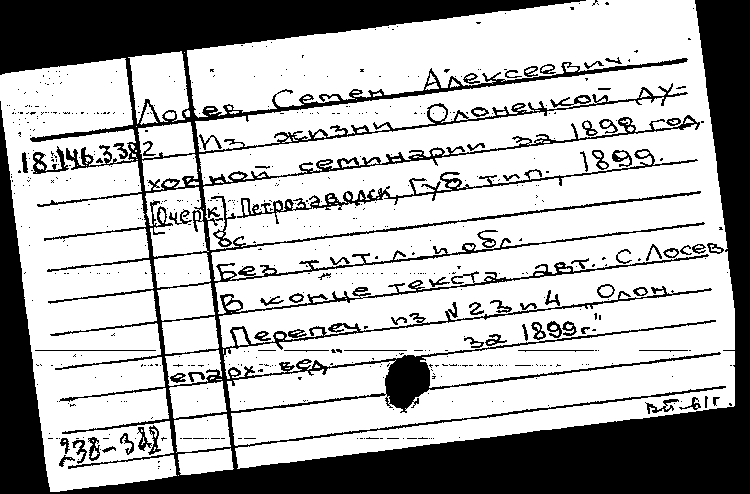 Лосев, Семен Алексеевич.
18.146.3.382. Из жизни Олонецкой ду-
ховной семинарии за 1898 год.
[Очерк]. Петрозаводск, Губ. тип., 1899.
8с.
Без тит. л. и обл.
В конце текста авт.: С. Лосев.
Перепеч. из №2,3 и 4 "Олон.
епарх. вед." за 1899г."
238-388